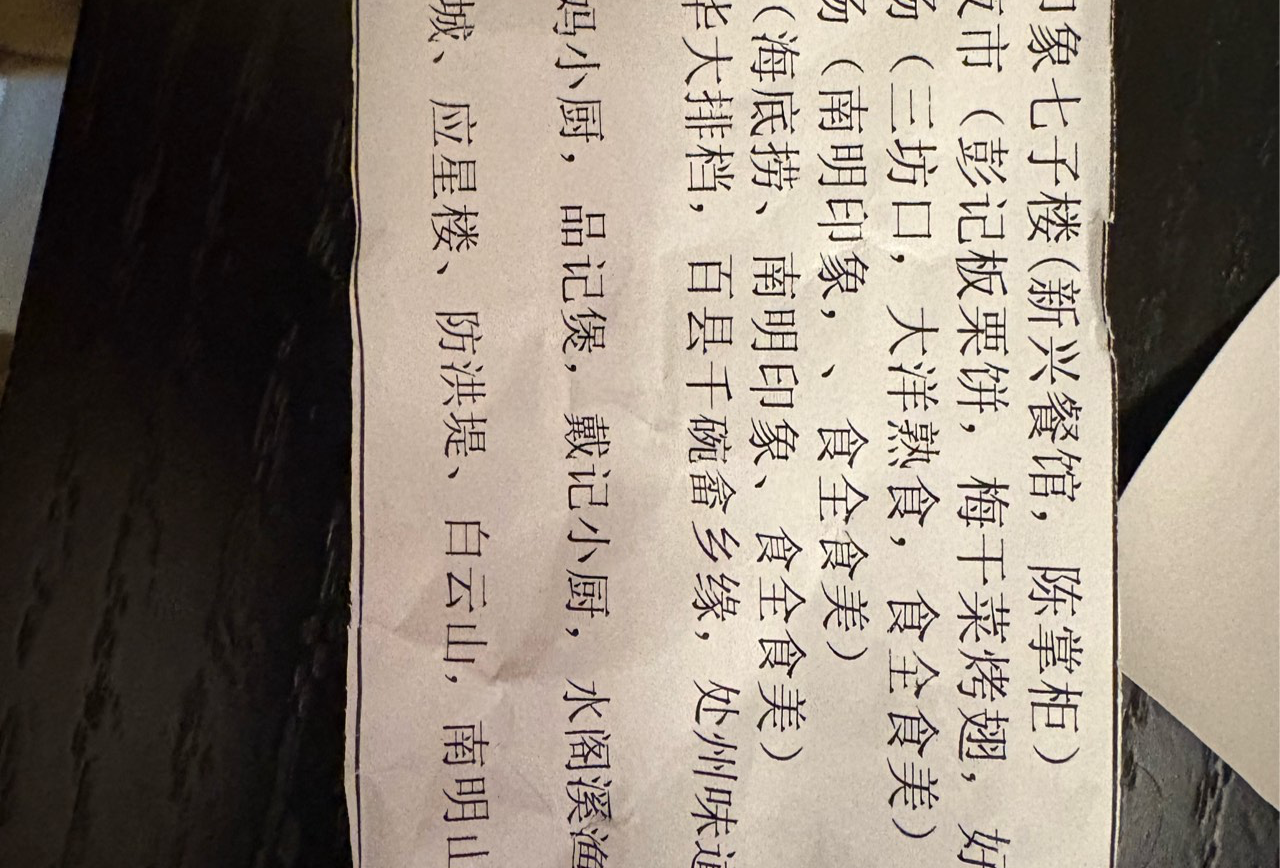 象七子楼(新兴餐馆，陈掌柜)
市（彭记板栗饼，梅干菜烤翅，好
（三坊口，大洋熟食，食全食美）
（南明印象，、食全食美）
（海底捞、南明印象、食全食美）
华大排档，百县千碗畲乡缘，处州味道
妈小厨，品记煲，戴记小厨，水阁溪渔
城、应星楼、防洪堤、白云山，南明山